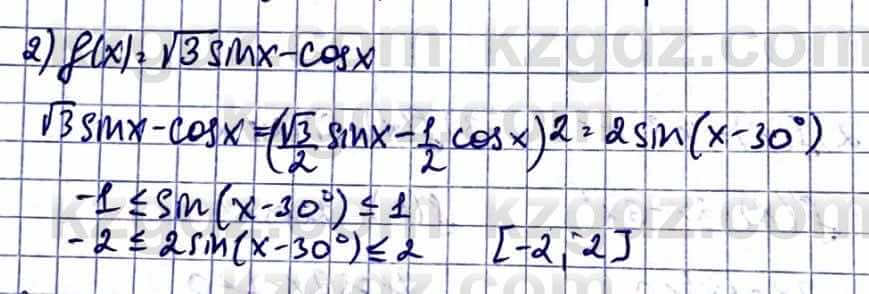 2) f(x)=√3sinx-cosx
√3sinx-cosx=(√3/2 sinx-1/2 cosx)2=2sin(x-30°)
-1≤sin(x-30°)≤1
-2≤2sin(x-30°)≤2 [-2,-2]